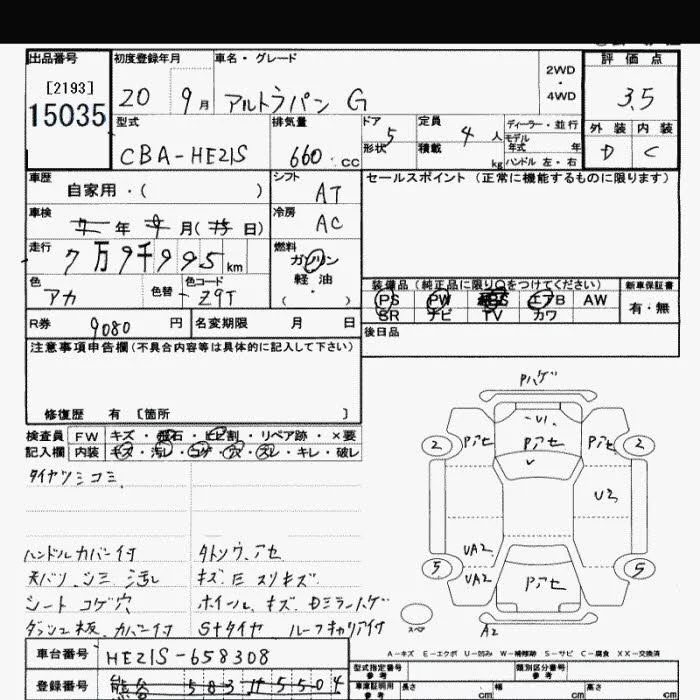 出品番号 初度登録年月 車名・グレード 評価点
[2193]
15035
20 9月 アルトラパン G 2WD・4WD 3.5
型式 排気量 ドア 定員 ディーラー・並行 外装 内装
CBA-HE21S 660 cc 5 4人 モデル年式 年 D C
形状 積載 kg ハンドル 左・右
車歴 シフト セールスポイント (正常に機能するものに限ります)
自家用・( ) AT
車検 年 月( 日) 冷房 AC
走行 7万9千995km 燃料 ガソリン
軽油
・( )
装備品 (純正品に限り○をつけてください) 新車保証書
色 アカ 色替 色コード Z9T
PS PW ABS エアB AW 有・無
SR ナビ TV カワ
R券 9080円 名変期限 月 日
後日品
注意事項申告欄(不具合内容等は具体的に記入して下さい)
修復歴 有 [箇所 ]
検査員 FW キズ・飛石・ヒビ割・リペア跡・×要
記入欄 内装 キズ・汚レ・コゲ・穴・スレ・キレ・破レ
Pハゲ
-U1
Pアセ Pアセ Pアセ
2 2
U2
UA2
UA2
5 5
Pアセ
スペア
A2
ハンドルカバー付
天バリ、シミ 汚レ
シート コゲ穴
ダッシュ板、カバー付
キズ
ホイール、キズ
Sタイヤ ルーフキャリア付
A-キズ E-エクボ U-凹み W-補修跡 S-サビ C-腐食 XX-交換済
車台番号 HE21S-658308
登録番号 熊谷 583 5504
型式指定番号 類別区分番号
参考 参考
車庫証明用 長さ 幅 高さ
参考 cm cm cm